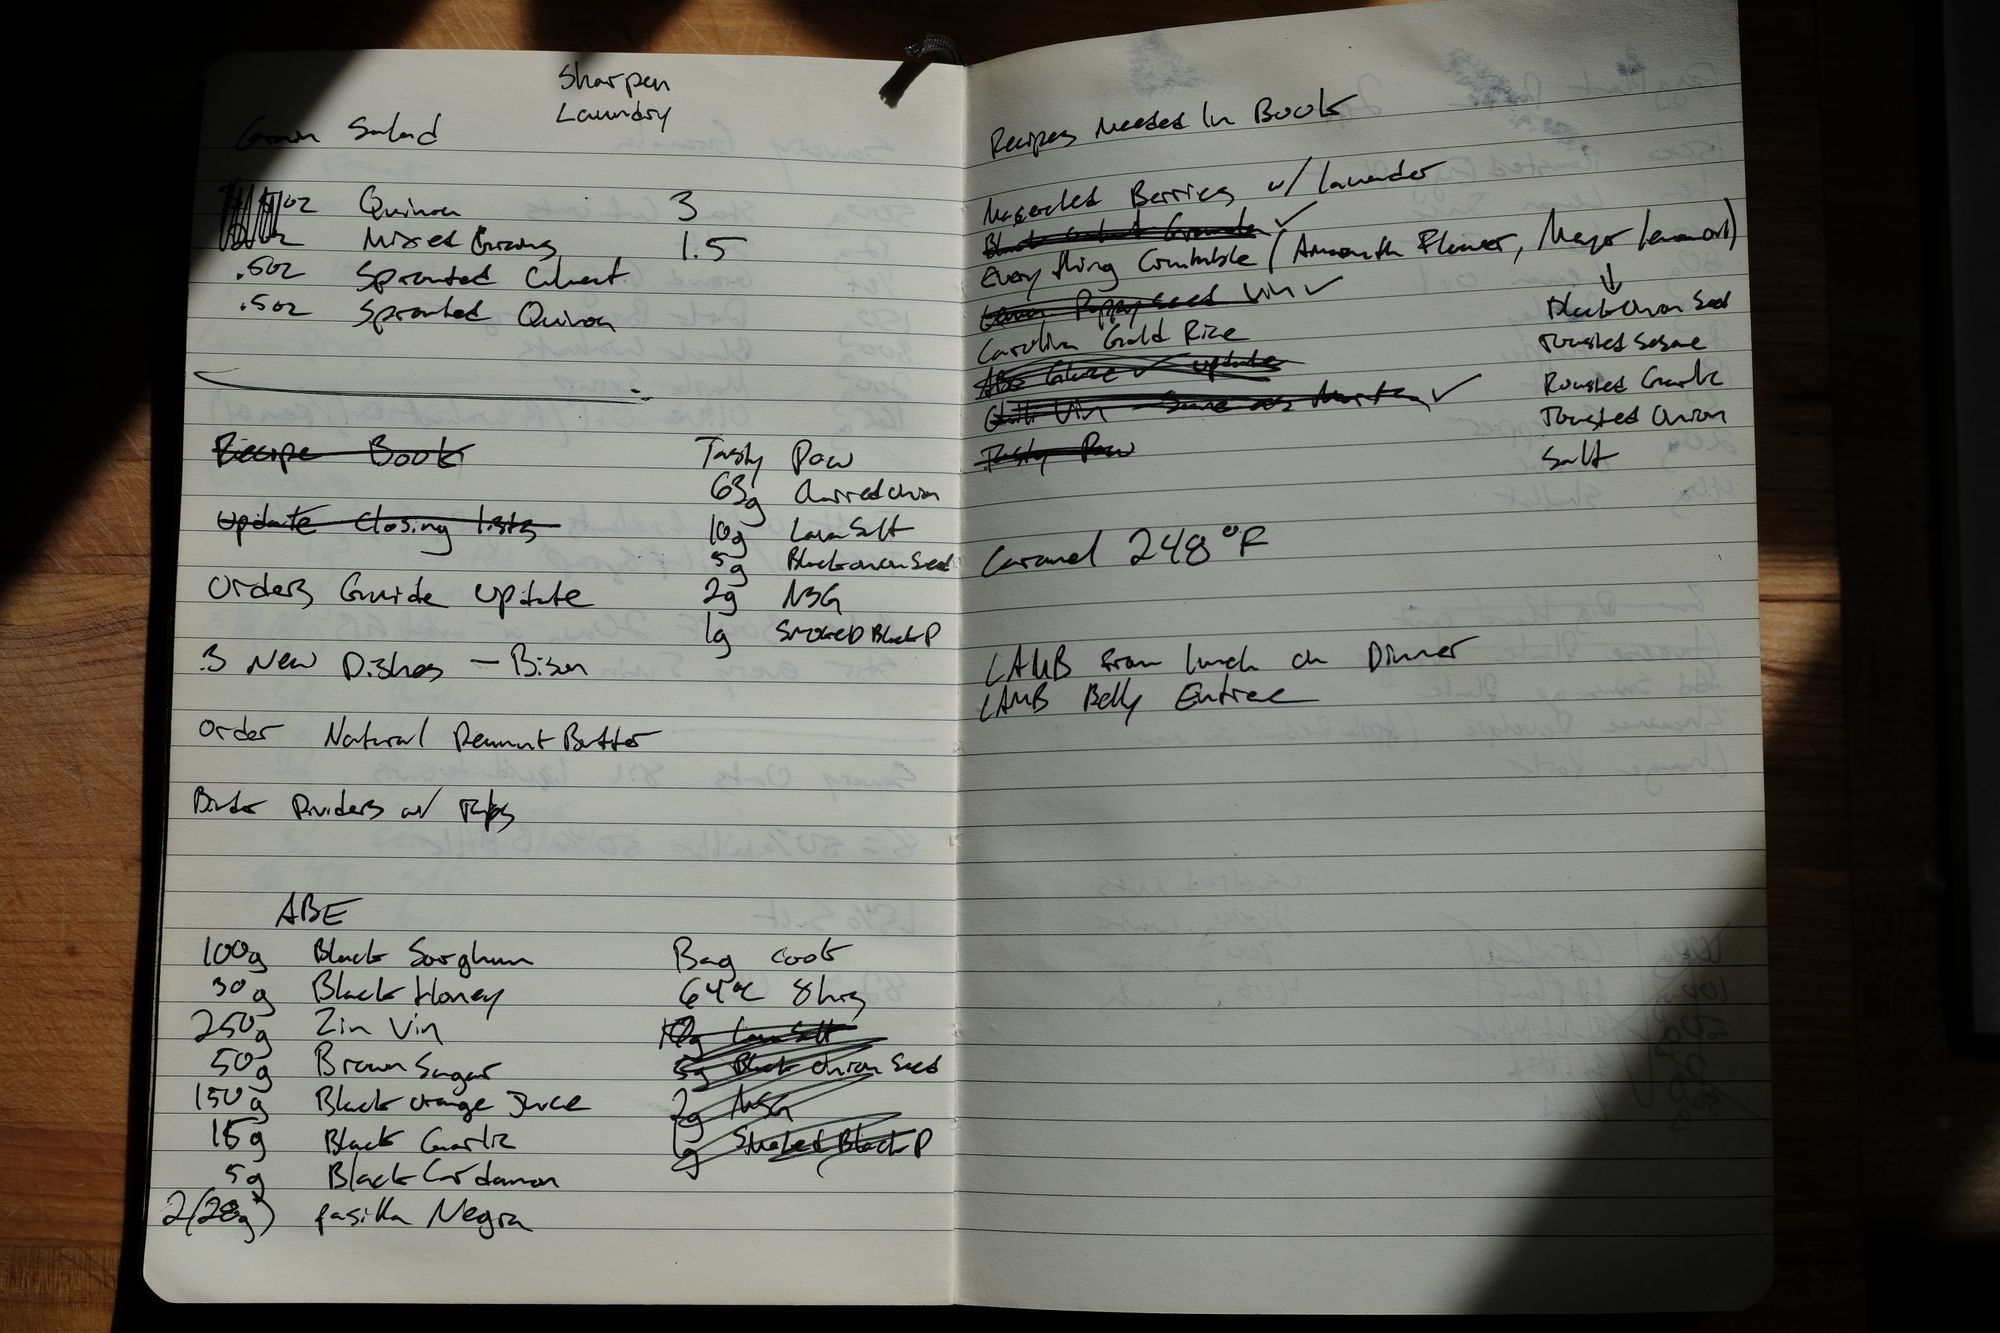 Sharpen
Laundry
Grain Salad
oz Quinoa 3
oz Mixed Grains 1.5
.5oz Sprouted
.5oz Sprouted Quinoa
Recipe Book
Update Closing lists
Orders Guide update
3 New Dishes - Bison
Order Natural Peanut Butter
Dividers w/ Tabs
Tasty Paw
63g Charred Onion
10g Lava Salt
5g Black onion Seed
2g MSG
1g Smoked Black P
ABE
100g Black Sorghum
30g Black Honey
250g Zin Vin
50g Brown Sugar
150g Black orange Juice
15g Black Garlic
5g Black Cardamon
2(28g) pasilla Negra
Bag cook
64°C 8hrs
10g Lava Salt
5g Black Onion Seed
2g MSG
1g Smoked Black P
Recipes Needed In Book
Macerated Berries w/ lavender
Black Walnut Granola ✓
Everything Crumble (Amaranth Flower,
Lemon Poppyseed Vin ✓
Carolina Gold Rice
ABE Glaze ✓ update
Vin - Same as ✓
Tasty Paw
↓
Black Onion Seed
Toasted Sesame
Roasted Garlic
Toasted Onion
Salt
Caramel 248°F
LAMB from lunch on Dinner
LAMB Belly Entree